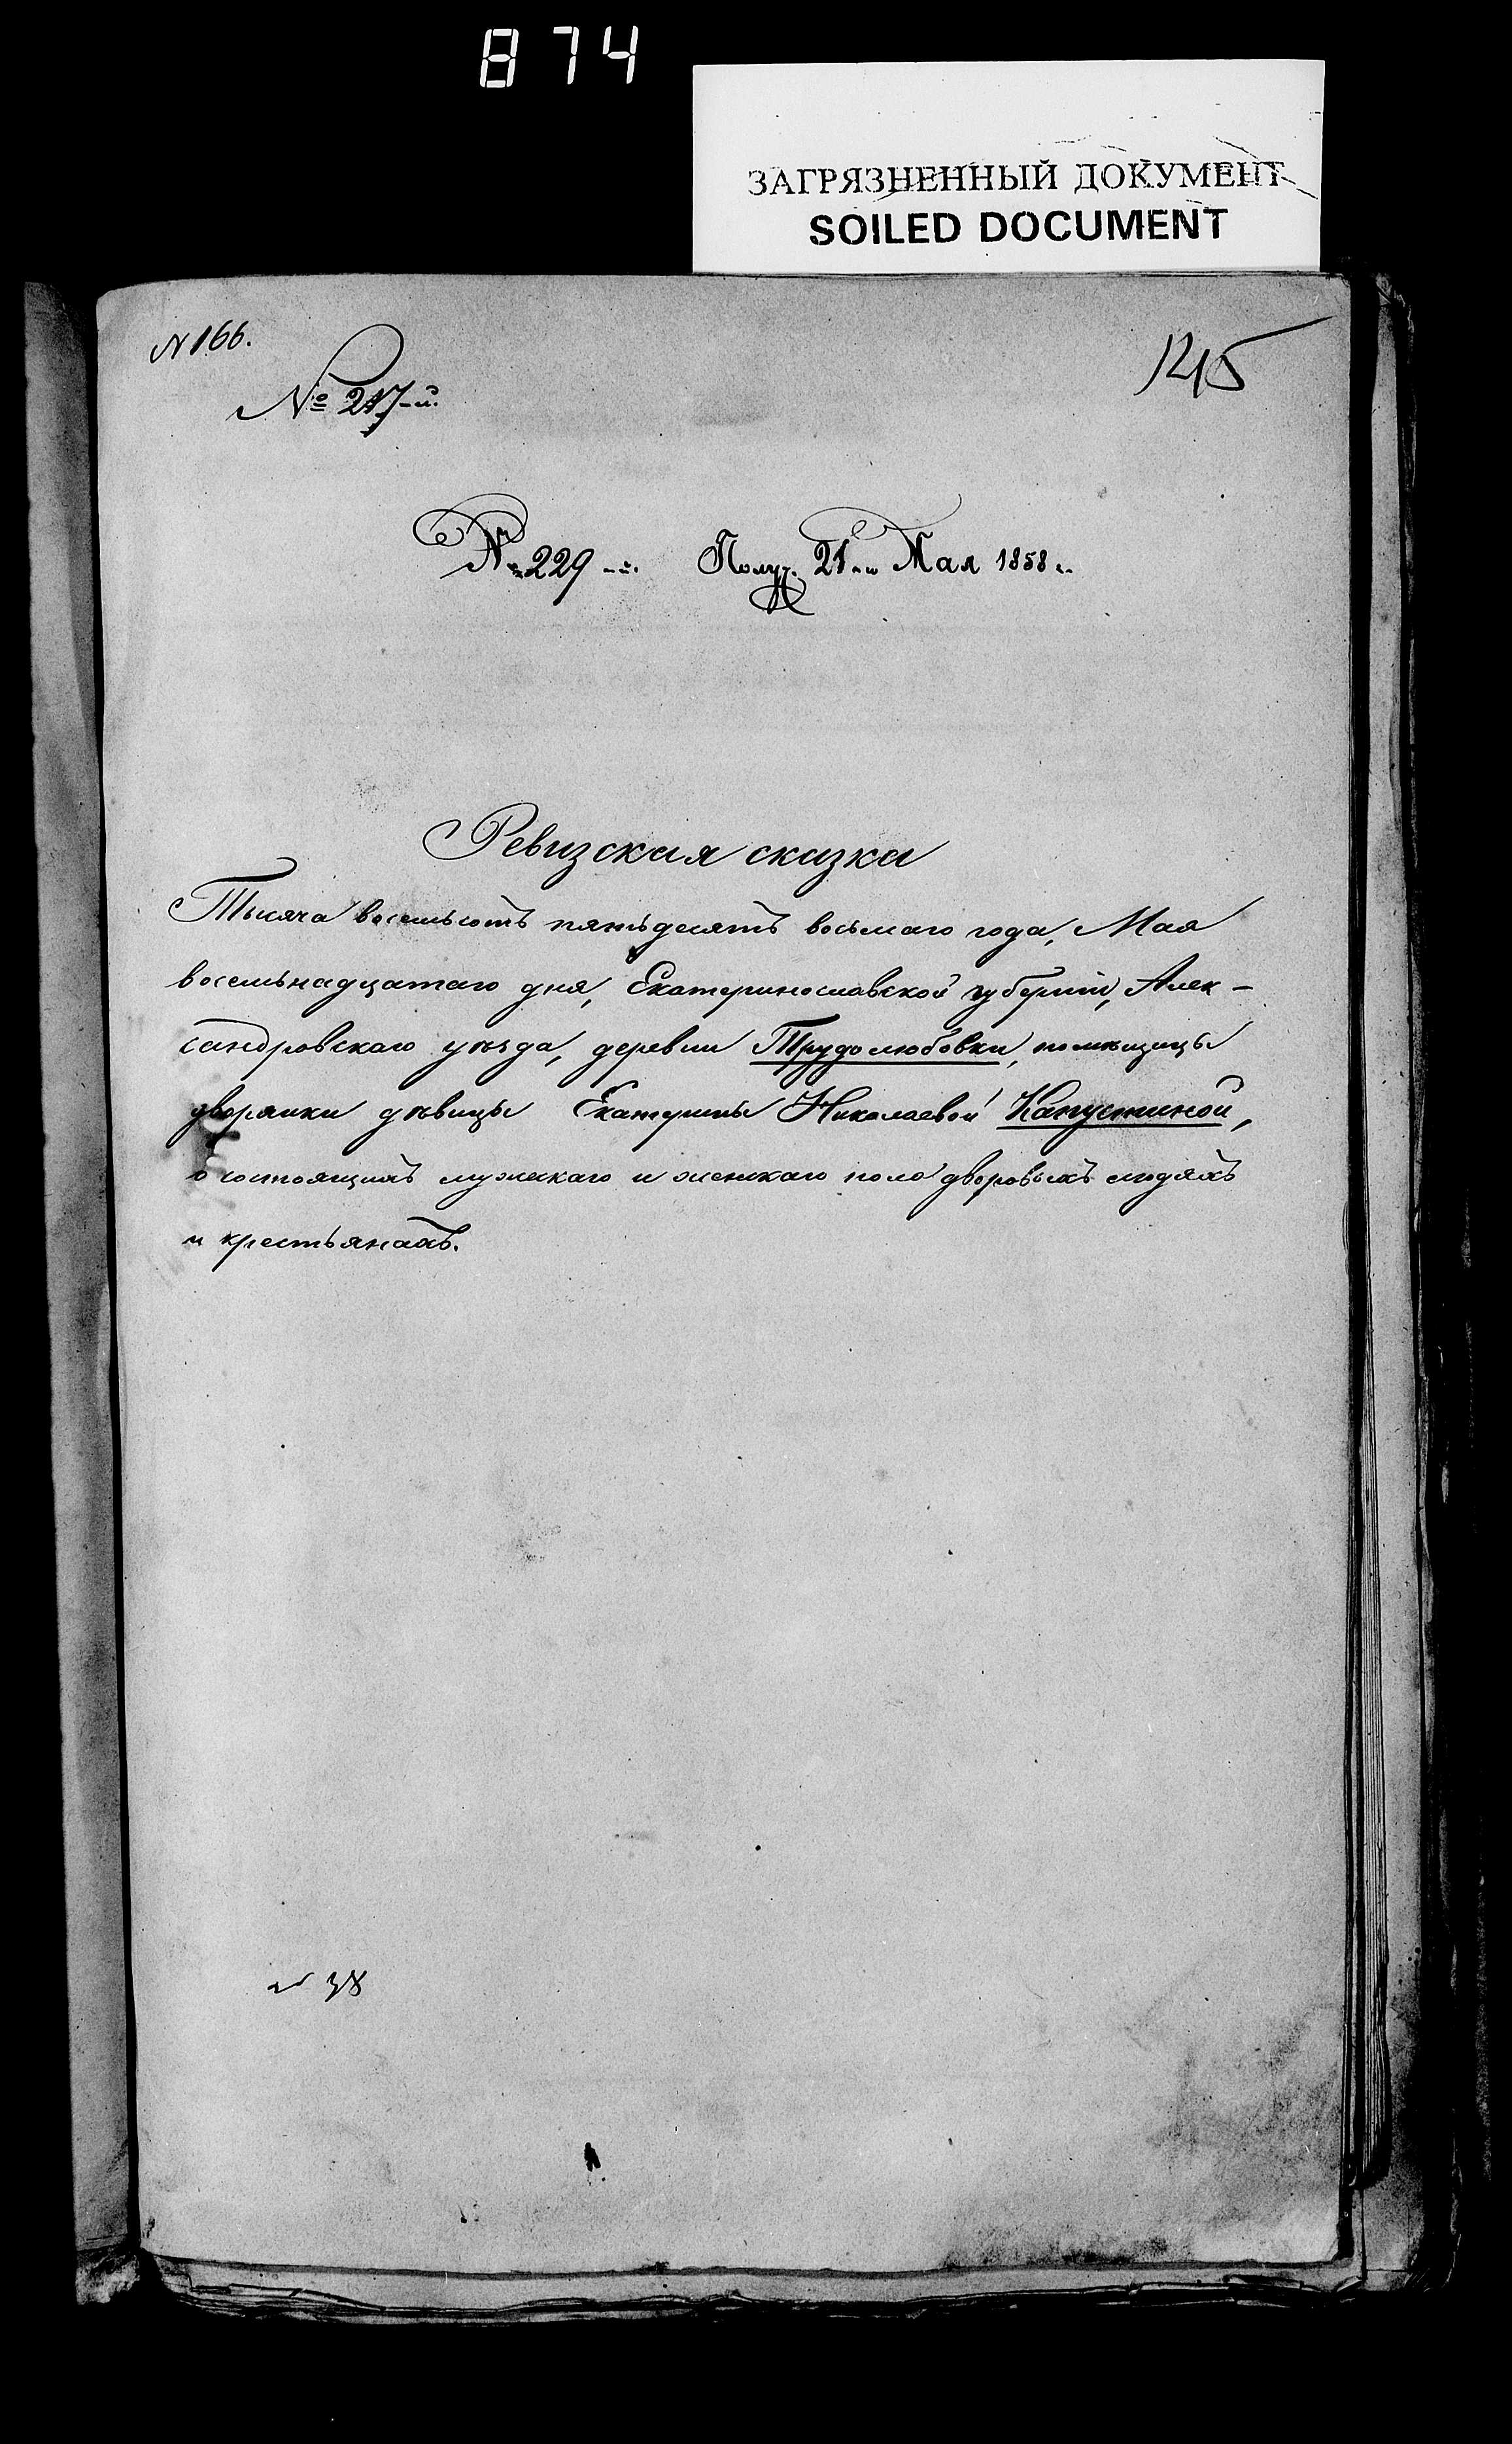 874
ЗАГРЯЗНЕННЫЙ ДОКУМЕНТ
SOILED DOCUMENT
N 166.
1245
№ 217-й.
№ 229-й. Получ. 21го Мая 1858 г.
Ревизская сказка
Тысяча восемьсотъ пятьдесятъ восьмаго года, Мая
восемьнадцатаго дня, Екатеринославской губерніи, Алек-
сандровскаго уѣзда, деревни Трудолюбовки, помѣщицы
дворянки дѣвицы Екатерины Николаевой Капустиной,
о состоящихъ мужскаго и женскаго пола дворовыхъ людяхъ
и крестьянахъ.
№ 38